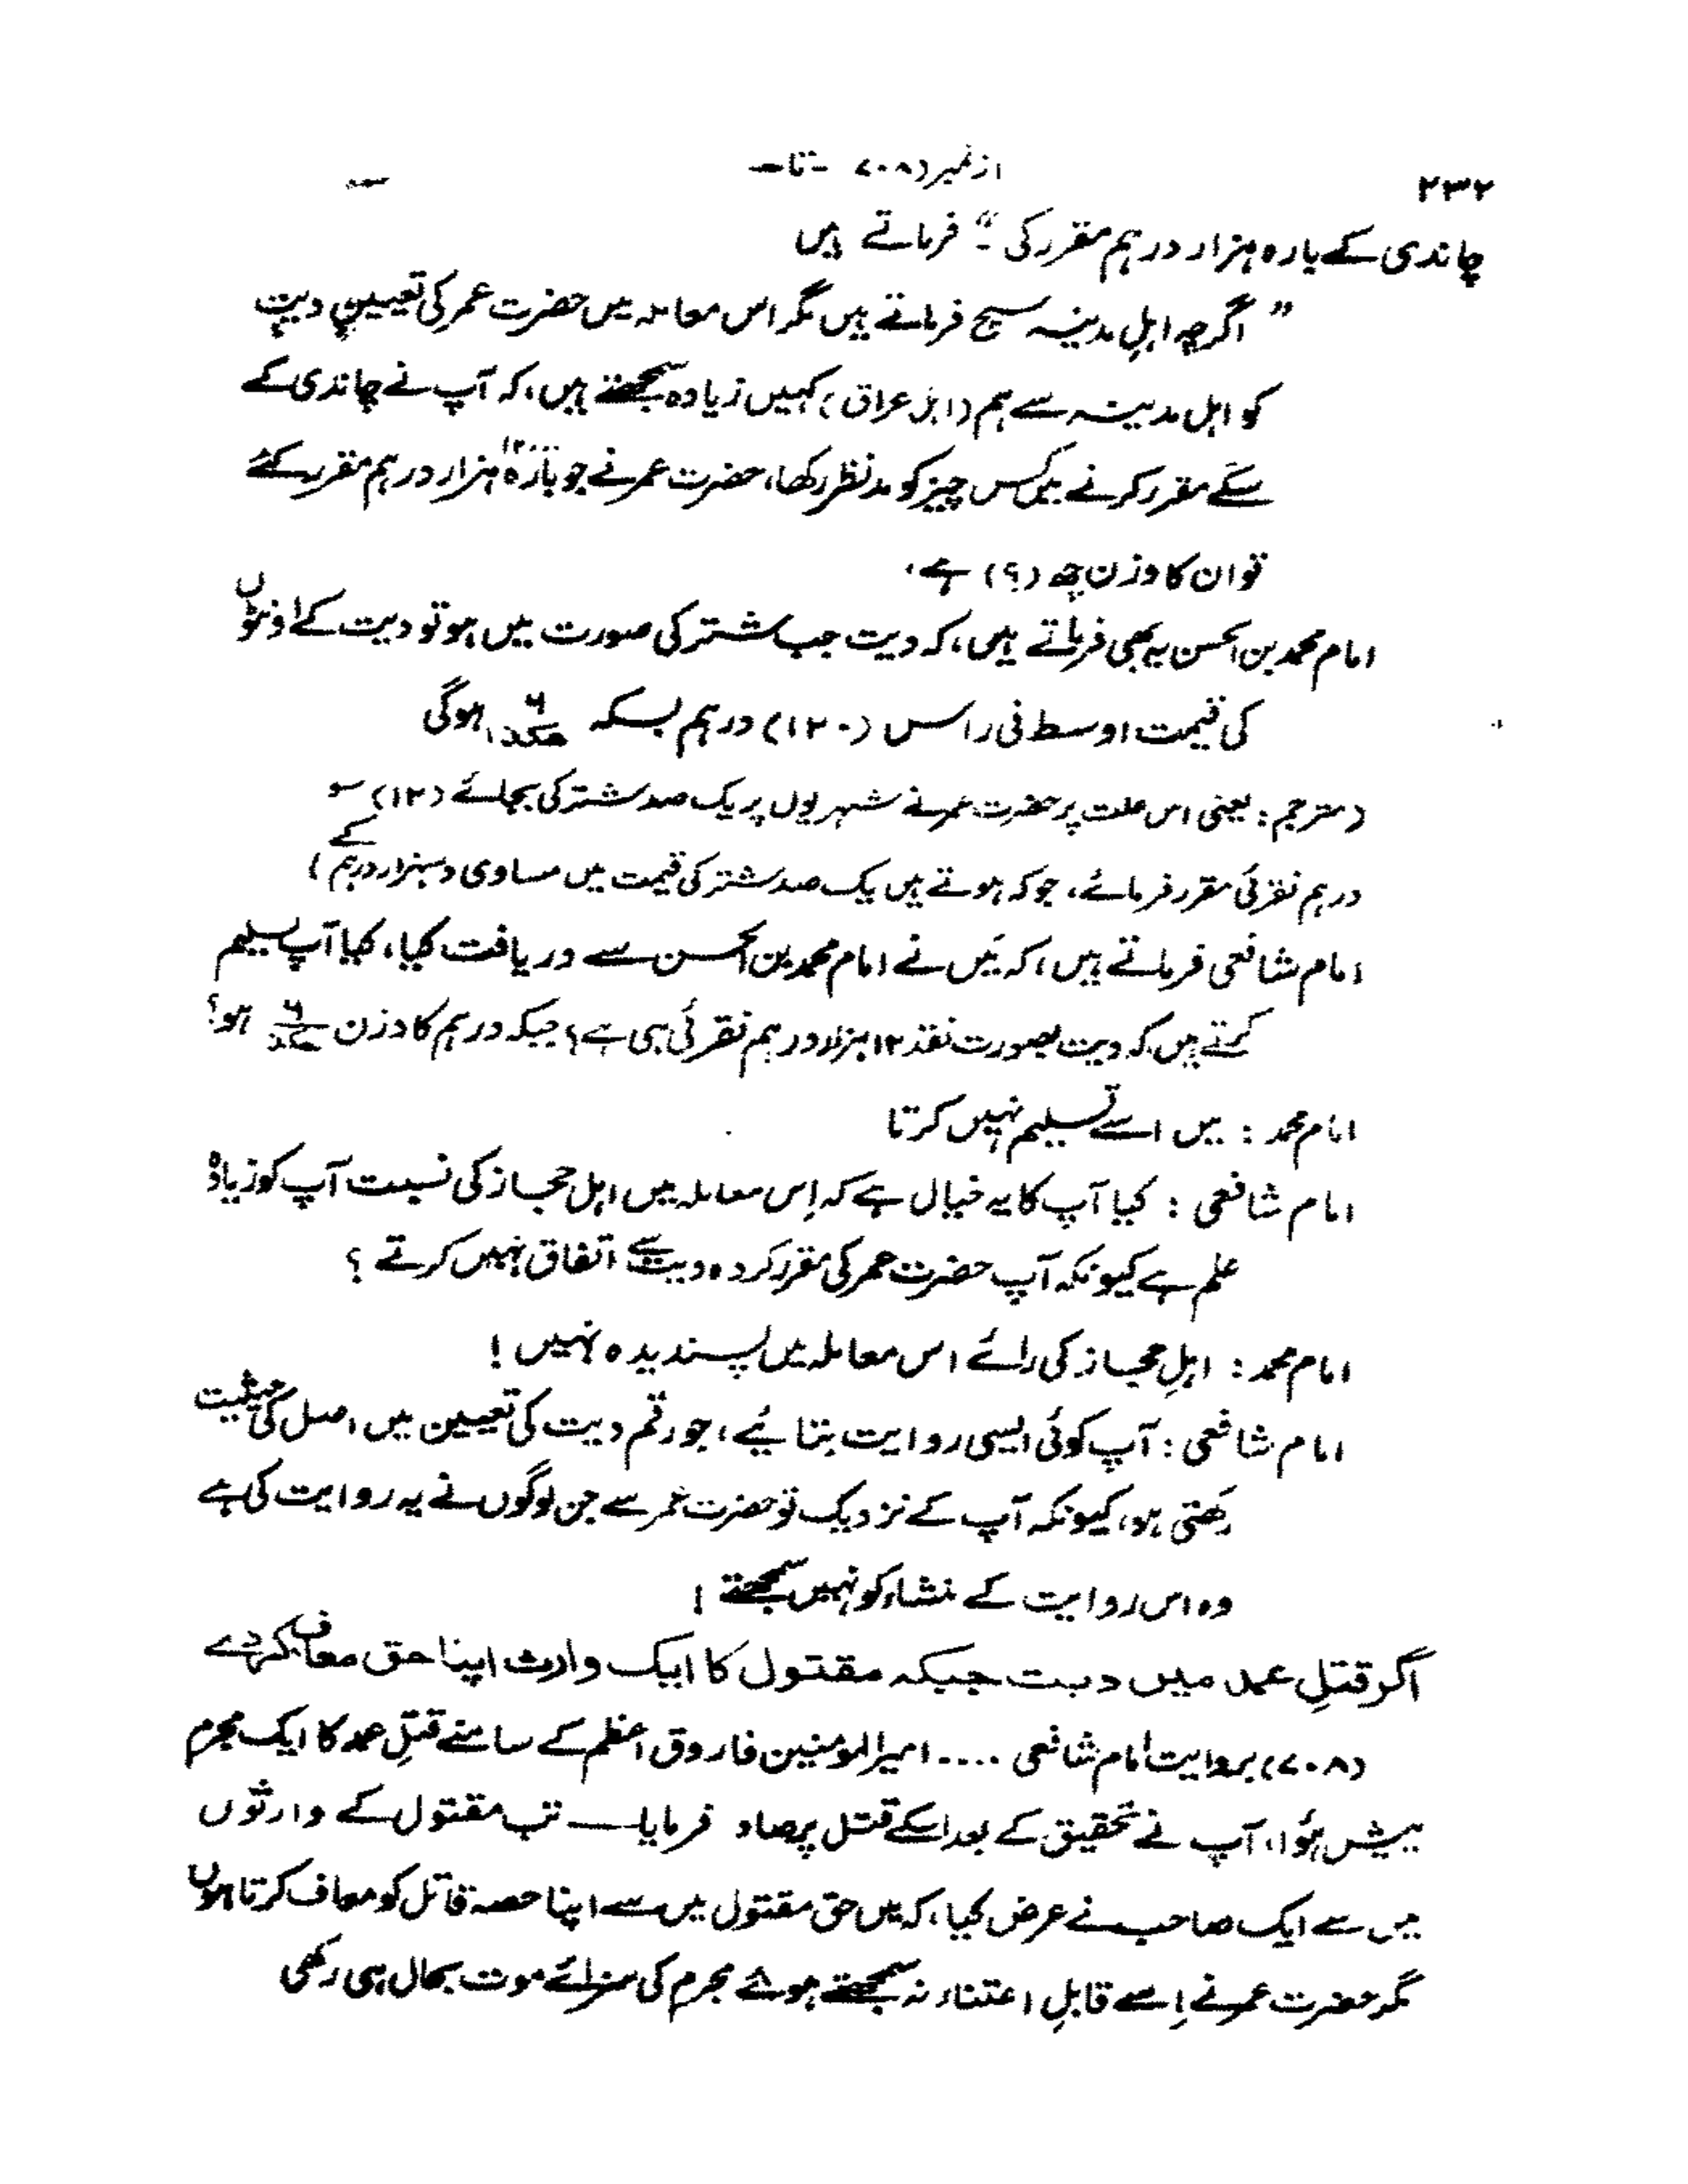 ۲۳۲ از نمبر (۷۰۸ - تا -
چاندی کے بارہ ہزار درہم مقرر کی ۔" فرماتے ہیں
" اگرچہ اہلِ مدینہ سچ فرماتے ہیں مگر اس معاملہ میں حضرت عمر کی تعیینِ دیت
کو اہل مدینہ سے ہم (اہل عراق) کہیں زیادہ سمجھتے ہیں، کہ آپ نے چاندی کے
سکّے مقرر کرنے میں کس چیز کو مدنظر رکھا، حضرت عمر نے جو بارہ ۱۲۰۰۰ ہزار درہم مقرر کئے
تو ان کا وزن چھ (؟) ہے،
امام محمد بن الحسن یہ بھی فرماتے ہیں، کہ دیت جب شتر کی صورت میں ہو تو دیت کے اونٹوں
کی قیمت اوسط فی راس (۱۲۰) درہم بسکہ ۶ ہوگی
(مترجم: یعنی اس علت پر حضرت عمر نے شہریوں پر یک صد شتر کی بجائے (۱۲) سو
درہم نقرئی مقرر فرمائے، جو کہ ہوتے ہیں یک صد شتر کی قیمت میں مساوی دسہزار درہم کے)
امام شافعی فرماتے ہیں، کہ میں نے امام محمد بن الحسن سے دریافت کیا، کیا آپ تسلیم
کرتے ہیں کہ دیت بصورت نقد ۱۲ ہزار درہم نقرئی ہی ہے؟ جبکہ درہم کا وزن ۶ ہو؟
امام محمد : میں اسے تسلیم نہیں کرتا
امام شافعی : کیا آپ کا یہ خیال ہے کہ اِس معاملہ میں اہل حجاز کی نسبت آپ کو زیادہ
علم ہے کیونکہ آپ حضرت عمر کی مقرر کردہ دیت سے اتفاق نہیں کرتے ؟
امام محمد : اہلِ حجاز کی رائے اس معاملہ میں پسندیدہ نہیں !
امام شافعی : آپ کوئی ایسی روایت بتائیے، جو رقم دیت کی تعیین میں اصل کی حیثیت
رکھتی ہو، کیونکہ آپ کے نزدیک تو حضرت عمر سے جن لوگوں نے یہ روایت کی ہے
وہ اس روایت کے منشاء کو نہیں سمجھتے !
اگر قتلِ عمد میں دیت جبکہ مقتول کا ایک وارث اپنا حق معاف کردے
(۷۰۸) بروایت امام شافعی .... امیرالمومنین فاروق اعظم کے سامنے قتلِ عمد کا ایک مجرم
پیش ہُوا، آپ نے تحقیق کے بعد اسکے قتل پر صاد فرمایا ـــ تب مقتول کے وارثوں
میں سے ایک صاحب نے عرض کیا، کہ میں حق مقتول میں سے اپنا حصہ قاتل کو معاف کرتا ہوں
مگر حضرت عمر نے اِسے قابلِ اعتناء نہ سمجھتے ہوئے مجرم کی سزائے موت بحال ہی رکھی